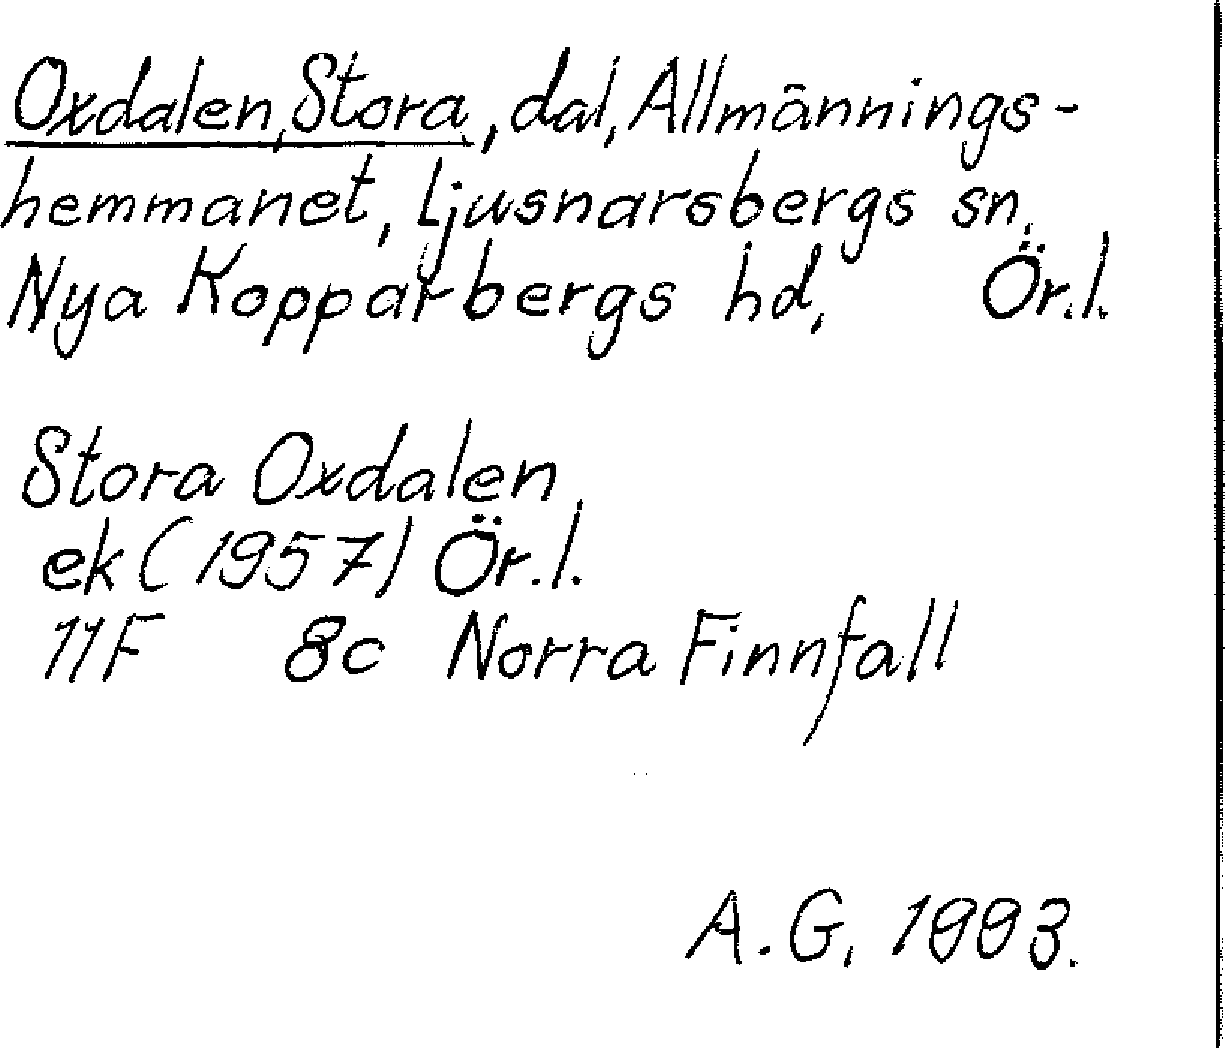 Oxdalen, Stora, dal, Allmännings-
hemmanet, Ljusnarsbergs sn,
Nya Kopparbergs hd, Ör.l.
Stora Oxdalen
ek (1957) Ör.l.
11F 8c Norra Finnfall
A.G. 1993.